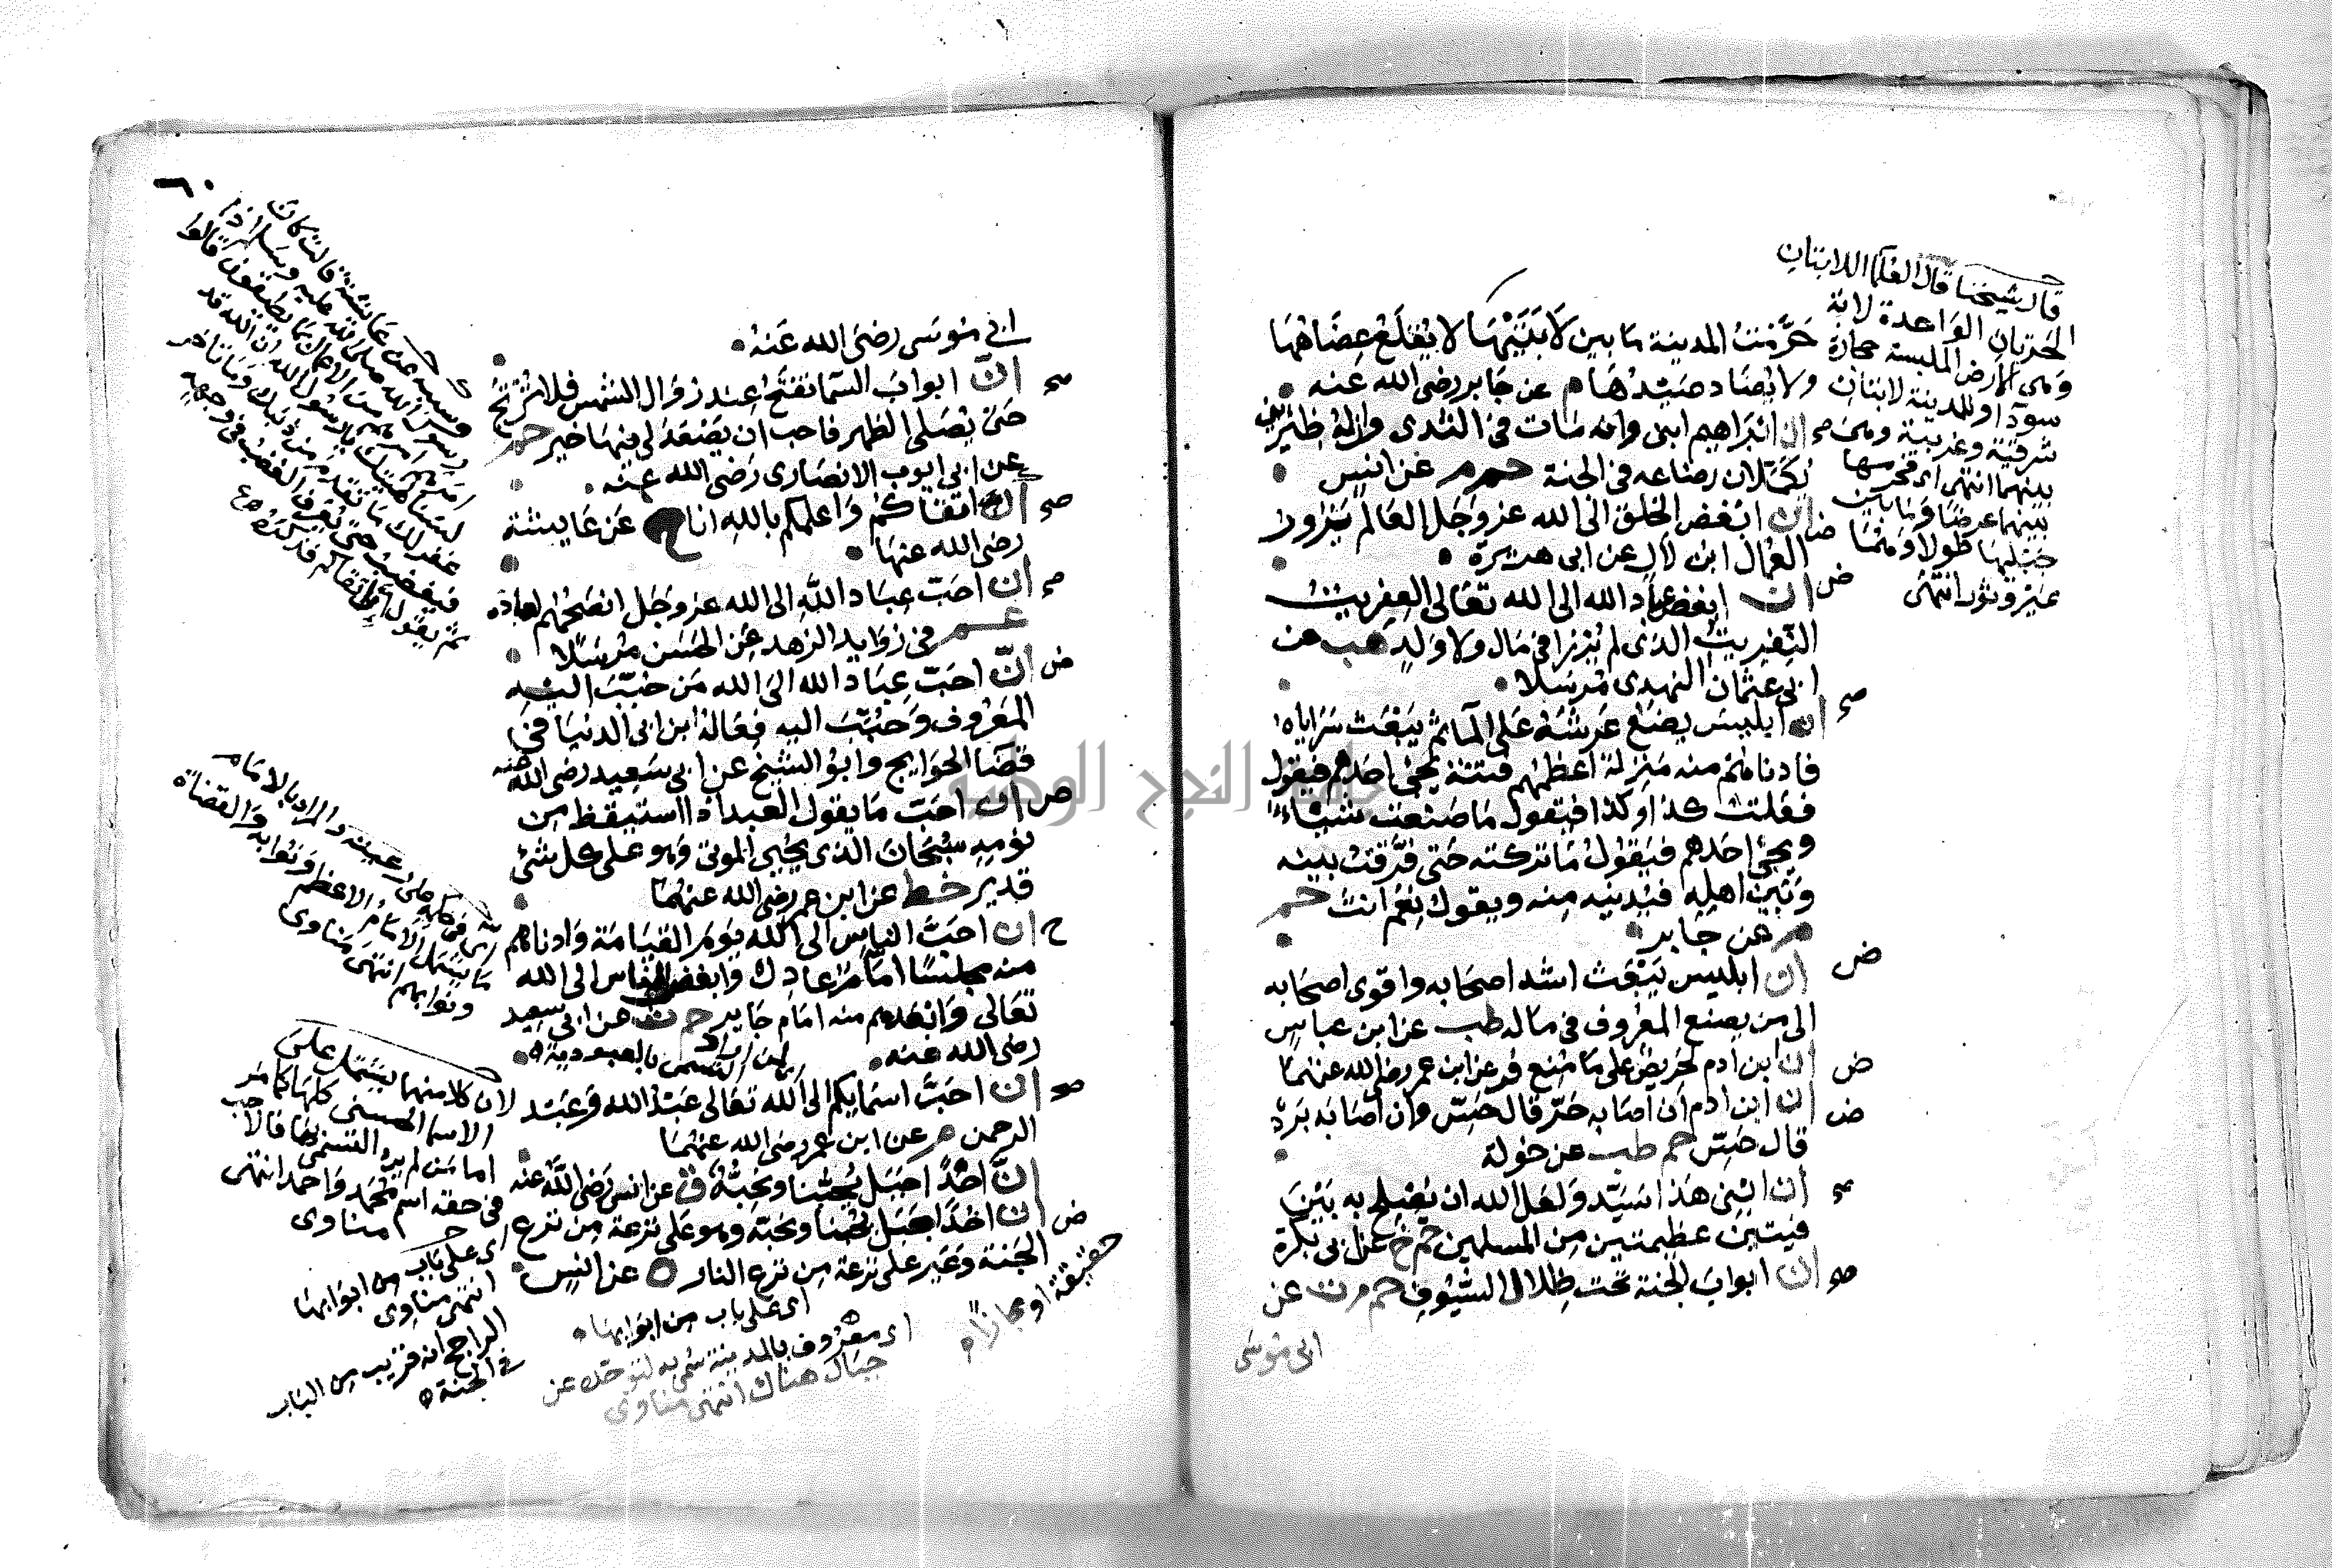 قال شيخنا قال العلما اللابتان
الحرتان الواحدة لابة
وهى الارض الملبسة حجارة
سودا وللمدينة لابتان
شرقية وغربية وهى
بينهما انتهى اى فحرمها
بينهما عرضا وما بين
جبليها طولا وهما
عير وثور انتهى
حرمت المدينة ما بين لابتيها لا يقلع عضاهها
ولا يصاد صيدها م عن جابر رضى الله عنه
صح ان ابراهيم ابنى وانه مات فى الثدى وان له ظئرين
يكملان رضاعه فى الجنة حم م عن انس
ض ان ابغض الخلق الى الله عز وجل العالم يزور
العمال ابن لال عن ابى هريرة
ض ان ابغض عباد الله الى الله تعالى العفريت
النفريت الذى لم يرزا فى مال ولا ولد هب عن
ابى عثمان النهدى مرسلا
صح ان ابليس يضع عرشه على الما ثم يبعث سراياه
فادناهم منه منزلة اعظمهم فتنة يجئ احدهم فيقول
فعلت كذا وكذا فيقول ما صنعت شيئا
ويجئ احدهم فيقول ما تركته حتى فرقت بينه
وبين اهله فيدنيه منه ويقول نعم انت حم
م عن جابر
ض ان ابليس يبعث اشد اصحابه واقوى اصحابه
الى من يصنع المعروف فى ماله طب عن ابن عباس
ض ان ابن ادم لحريص على ما منع فر عن ابن عمر رضى الله عنهما
ض ان ابن ادم ان اصابه حر قال حس وان اصابه برد
قال حس حم طب عن خولة
صح ان ابنى هذا سيد ولعل الله ان يصلح به بين
فيتين عظيمتين من المسلمين حم خ عن ابى بكرة
صح ان ابواب الجنة تحت ظلال السيوف حم م ت عن
ابى موسى
٦٠
ابى موسى رضى الله عنه
صح ان ابواب السما تفتح عند زوال الشمس فلا ترتج
حتى يصلى الظهر فاحب ان يصعد لى فيها خير حم
عن ابى ايوب الانصارى رضى الله عنه
صح ان اتقاكم واعلمكم بالله انا خ عن عايشة
رضى الله عنها
صح ان احب عباد الله الى الله عز وجل انصحهم لعباده
عم فى زوايد الزهد عن الحسن مرسلا
ض ان احب عباد الله الى الله من حبب اليه
المعروف وحبب اليه فعاله ابن ابى الدنيا فى
قضا الحوايج وابو الشيخ عن ابى سعيد رضى الله عنه
ض ان احب ما يقول العبد اذا استيقظ من
نومه سبحان الذى يحيى الموتى وهو على كل شئ
قدير خط عن ابن عمر رضى الله عنهما
ح ان احب الناس الى الله يوم القيامة وادناهم
منه مجلسا امام عادل وابغض الناس الى الله
تعالى وابعدهم منه امام جاير حم ت عن ابى سعيد
رضى الله عنه
لمن اراد التسمى بالعبودية
صح ان احب اسمايكم الى الله تعالى عبد الله وعبد
الرحمن م عن ابن عمر رضى الله عنهما
ان احدا جبل يحبنا ونحبه ق عن انس رضى الله عنه
ض ان احدا جبل يحبنا ونحبه وهو على ترعة من ترع
الجنة وعير على ترعة من ترع النار ه عن انس
حقيقة او مجازا
اى على باب من ابوابها
اى معروف بالمدينة سمى به لتوحده عن
جبال هناك انتهى مناوى
وسببه عن عايشة قالت كان
رسول الله صلى الله عليه وسلم اذا
امرهم امرهم من الاعمال بما يطيقون قالوا
لسنا كهيئتك يا رسول الله ان الله قد
غفر لك ما تقدم من ذنبك وما تاخر
فيغضب حتى يعرف الغضب فى وجهه
ثم يقول ان اتقاكم فذكره
والمراد بالامام
ما يشمل الامام الاعظم ونوابه والقضاة
ونوابهم انتهى مناوى
لان كلا منهما يشتمل على
الاسما الحسنى كلها كما مر
اما من لم يرد التسمى بها فالاحب
فى حقه اسم محمد واحمد انتهى
مناوى
اى على باب من ابوابها
انتهى مناوى
الراجح انه قريب من الباب
فى الجنة
جامعة النجاح الوطنية